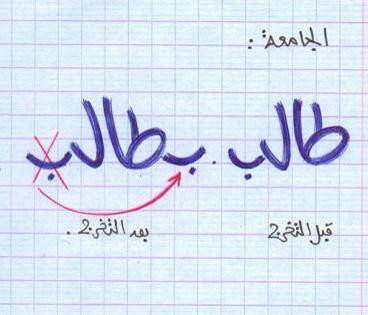 الجامعة :
طالب . بطالب
قبل التخرج بعد التخرج .